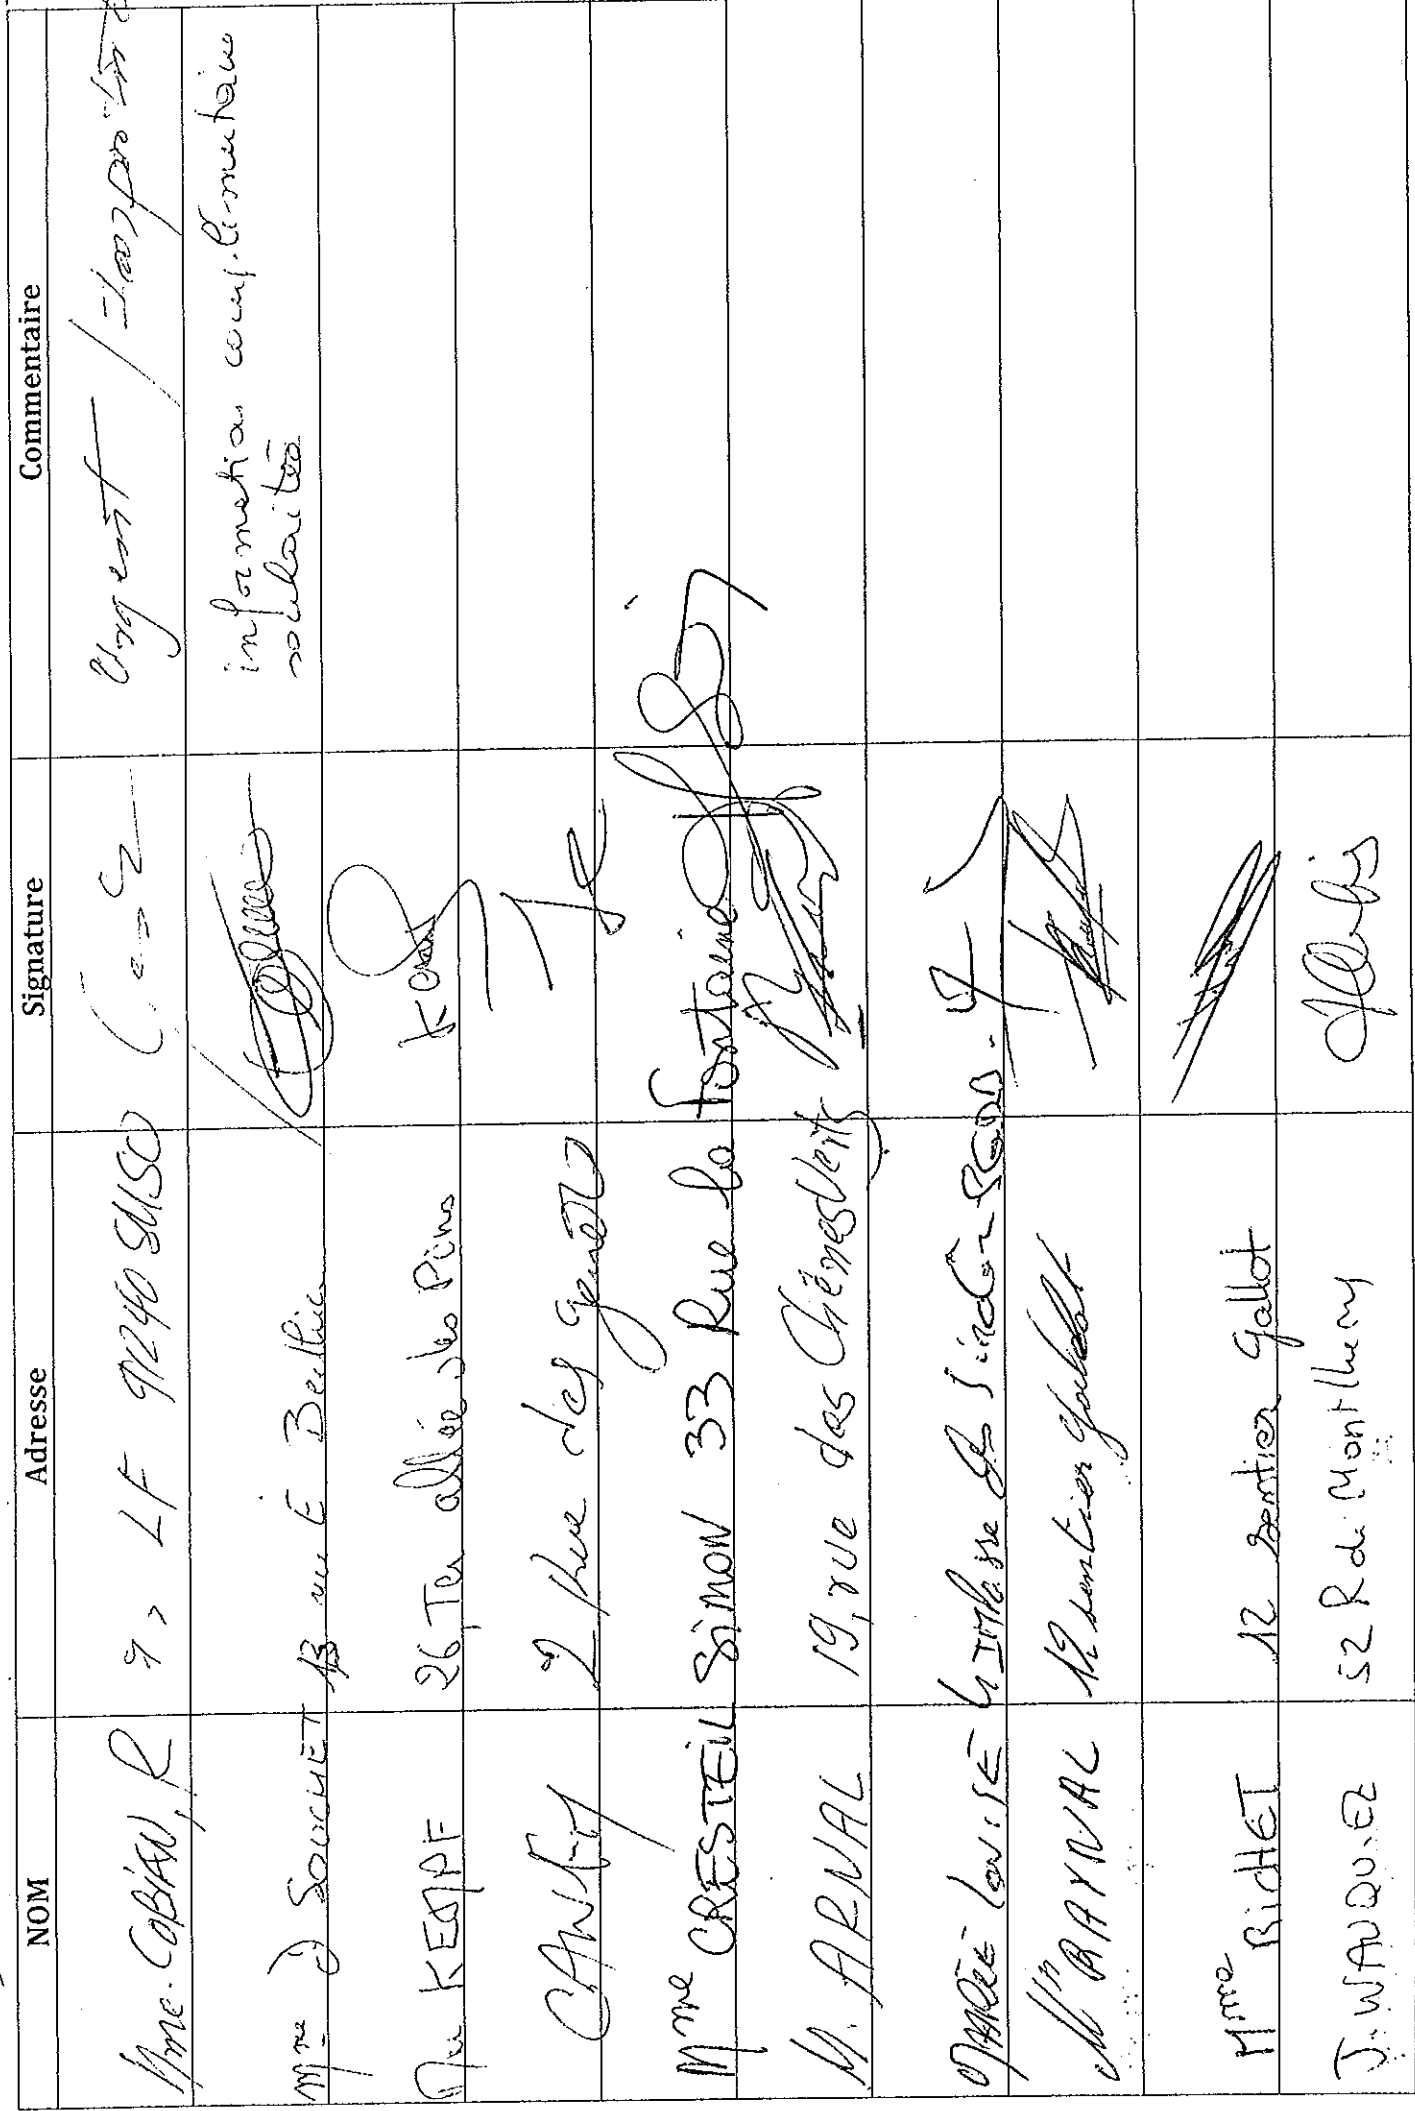 NOM Adresse Signature Commentaire
Mme. COBIAN, R 9, LF 91240 SMSO Urgent /
Mme J SOUCHET 13 rue E Berthier information complémentaire
souhaitée
KEMPF 26 Ter allée des Pins
CANKTY 2 Rue des genêts
Mme CRESTEIL SIMON 33 Rue la fontaine
M. ARNAL 19, rue des Chênes Verts
MARIE LOUISE 4 IMPasse
Mr RAYNAL 12 sentier gallot
Mme RICHET 12 sentier gallot
J. WAUQUIEZ 52 R de Montlhery